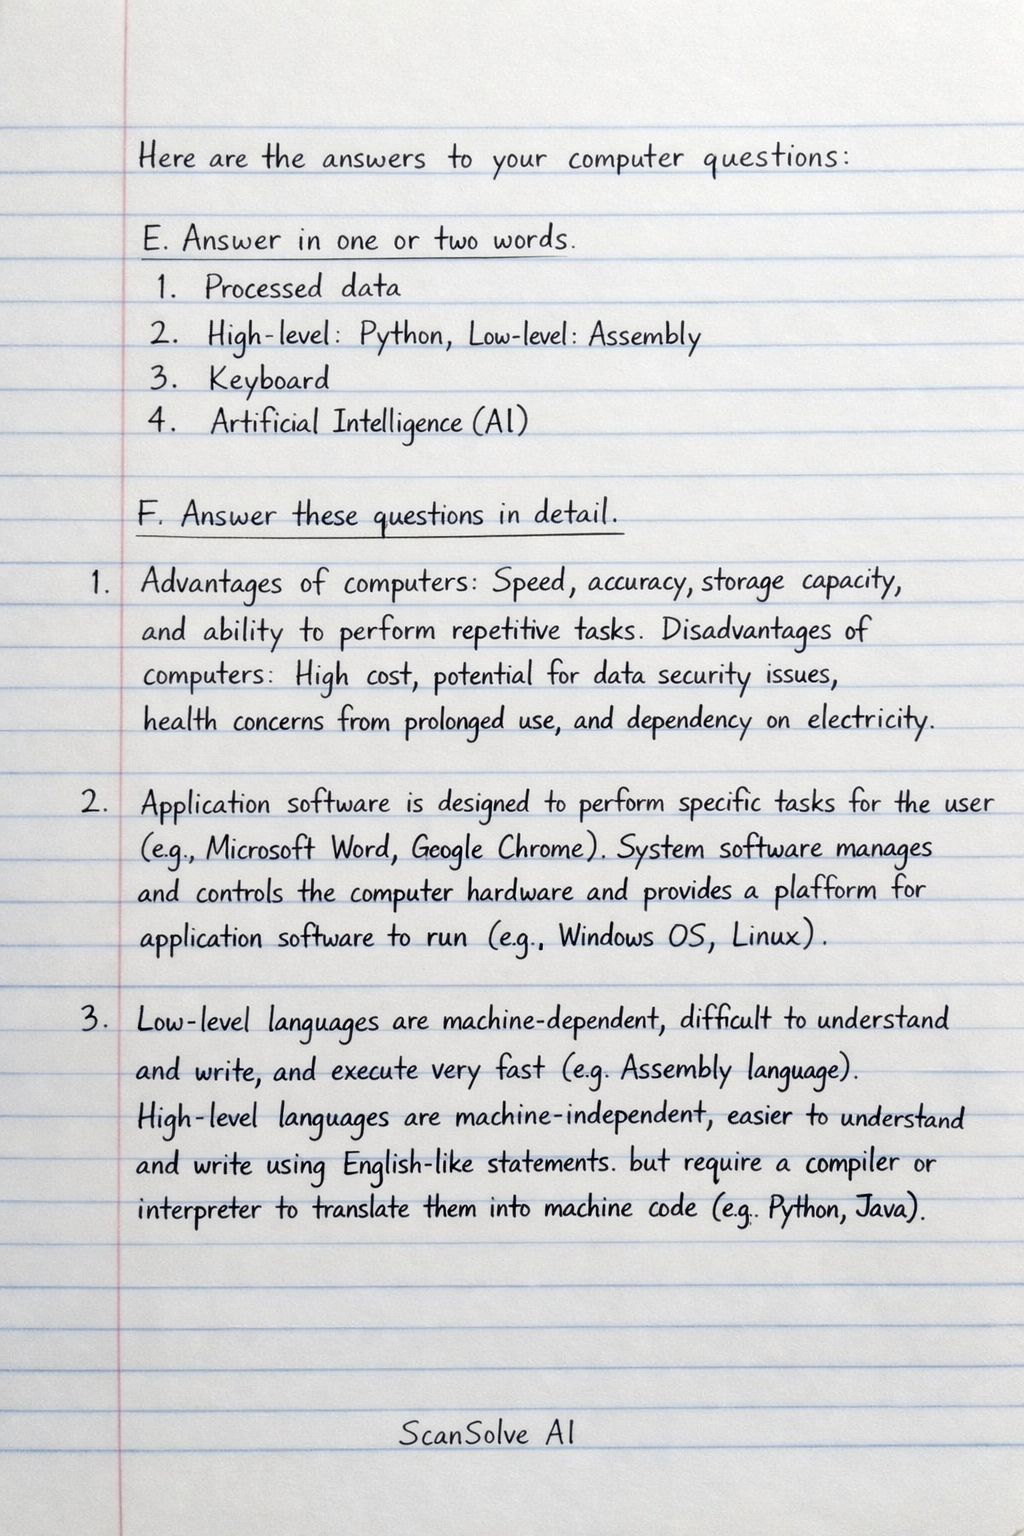 Here are the answers to your computer questions:
E. Answer in one or two words.
1. Processed data
2. High-level: Python, Low-level: Assembly
3. Keyboard
4. Artificial Intelligence (AI)
F. Answer these questions in detail.
1. Advantages of computers: Speed, accuracy, storage capacity,
and ability to perform repetitive tasks. Disadvantages of
computers: High cost, potential for data security issues,
health concerns from prolonged use, and dependency on electricity.
2. Application software is designed to perform specific tasks for the user
(e.g., Microsoft Word, Geogle Chrome). System software manages
and controls the computer hardware and provides a plafform for
application software to run (e.g., Windows OS, Linux).
3. Low-level languages are machine-dependent, difficult to understand
and write, and execute very fast (e.g. Assembly language).
High-level languages are machine-independent, easier to understand
and write using English-like statements. but require a compiler or
interpreter to translate them into machine code (e.g. Python, Java).
ScanSolve AI